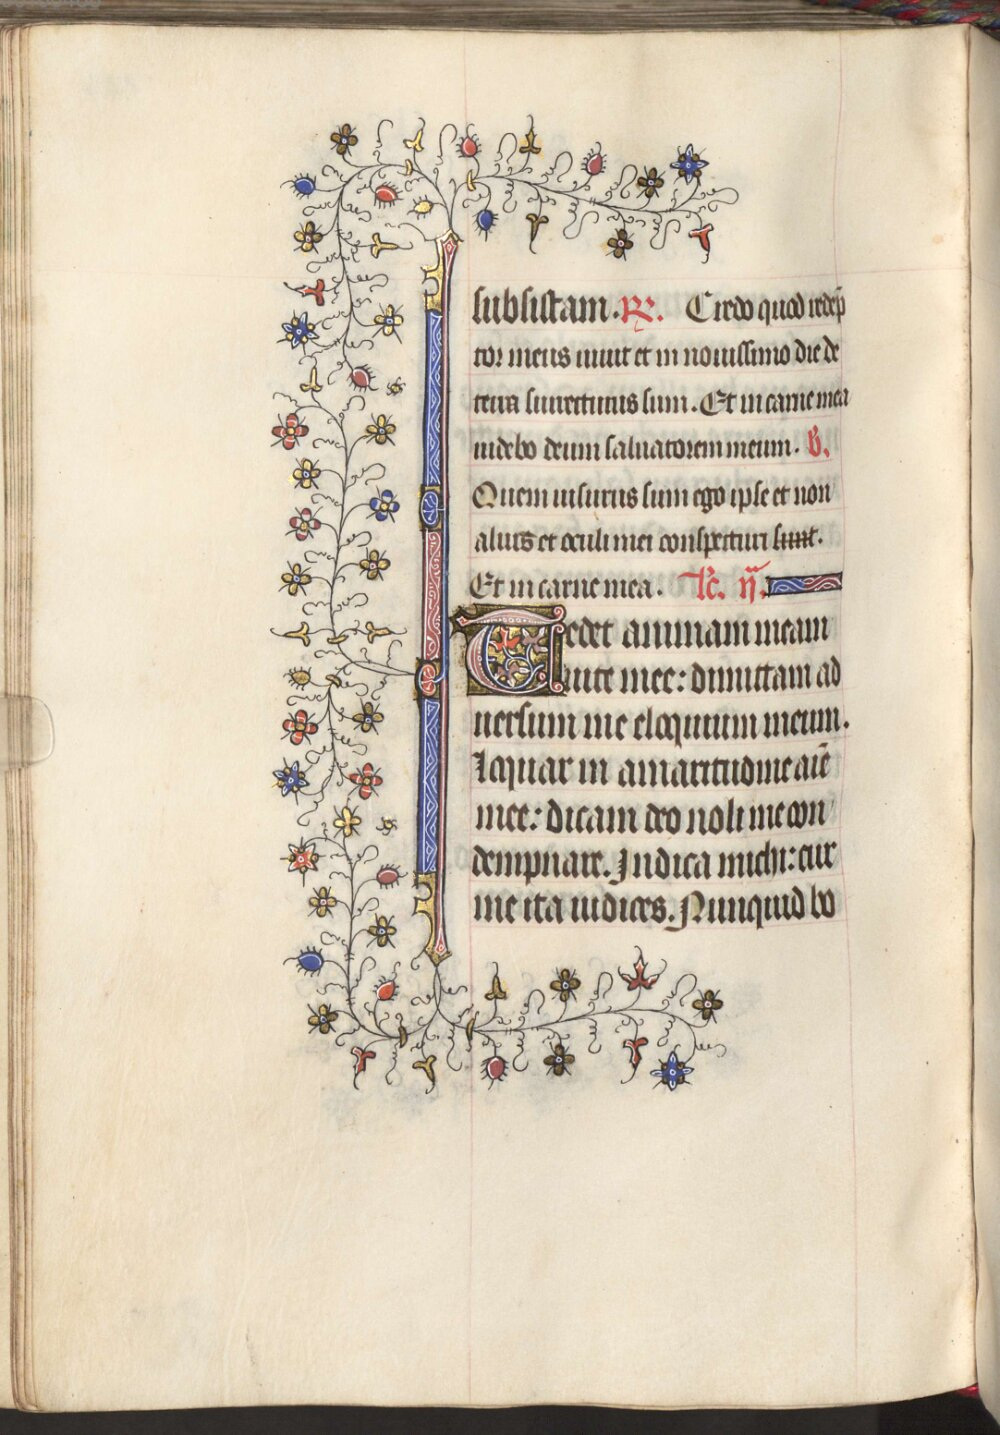 subsistam. R̃. Credo quod redẽp
tor meus uiuit et in nouissimo die de
terra surrecturus sum. Et in carne mea
uidebo deum saluatorem meum. v̓.
Quem uisurus sum ego ipse et non
alius et oculi mei conspecturi sunt.
Et in carne mea. lc̃. ij̃.
Tedet animam meam
uite mee: dimittam ad
uersum me eloquium meum.
loquar in amaritudine aĩe
mee: dicam deo noli me con
dempnare. Indica michi: cur
me ita iudices. Nunquid bo